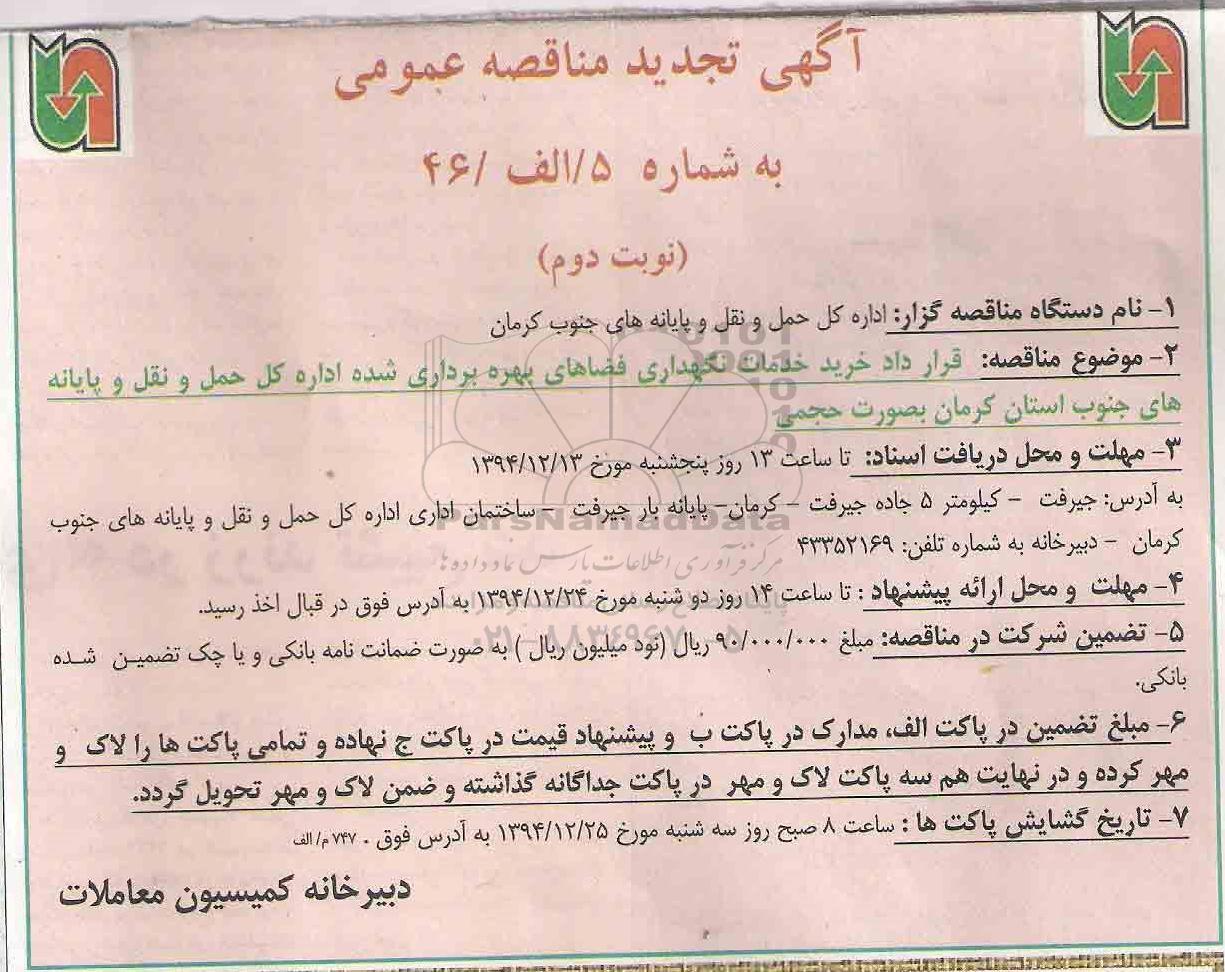 آگهی تجدید مناقصه عمومی
به شماره ۵/الف /۴۶
(نوبت دوم)
۱- نام دستگاه مناقصه گزار: اداره کل حمل و نقل و پایانه های جنوب کرمان
۲- موضوع مناقصه: قرار داد خرید خدمات نگهداری فضاهای بهره برداری شده اداره کل حمل و نقل و پایانه
های جنوب استان کرمان بصورت حجمی
۳- مهلت و محل دریافت اسناد: تا ساعت ۱۳ روز پنجشنبه مورخ ۱۳۹۴/۱۲/۱۳
به آدرس: جیرفت - کیلومتر ۵ جاده جیرفت - کرمان- پایانه بار جیرفت - ساختمان اداری اداره کل حمل و نقل و پایانه های جنوب
کرمان - دبیرخانه به شماره تلفن: ۴۳۳۵۲۱۶۹
۴- مهلت و محل ارائه پیشنهاد : تا ساعت ۱۴ روز دو شنبه مورخ ۱۳۹۴/۱۲/۲۴ به آدرس فوق در قبال اخذ رسید.
۵- تضمین شرکت در مناقصه: مبلغ ۹۰/۰۰۰/۰۰۰ ریال (نود میلیون ریال ) به صورت ضمانت نامه بانکی و یا چک تضمیـن شـده
بانکی.
۶- مبلغ تضمین در پاکت الف، مدارک در پاکت ب و پیشنهاد قیمت در پاکت ج نهاده و تمامی پاکت ها را لاک و
مهر کرده و در نهایت هم سه پاکت لاک و مهر در پاکت جداگانه گذاشته و ضمن لاک و مهر تحویل گردد.
۷- تاریخ گشایش پاکت ها : ساعت ۸ صبح روز سه شنبه مورخ ۱۳۹۴/۱۲/۲۵ به آدرس فوق . ۷۴۷ م/ الف
دبیرخانه کمیسیون معاملات
ParsNamadData
مرکز فرآوری اطلاعات پارس نماد داده ها
۰۲۱-۸۸۳۴۹۶۷۰-۵